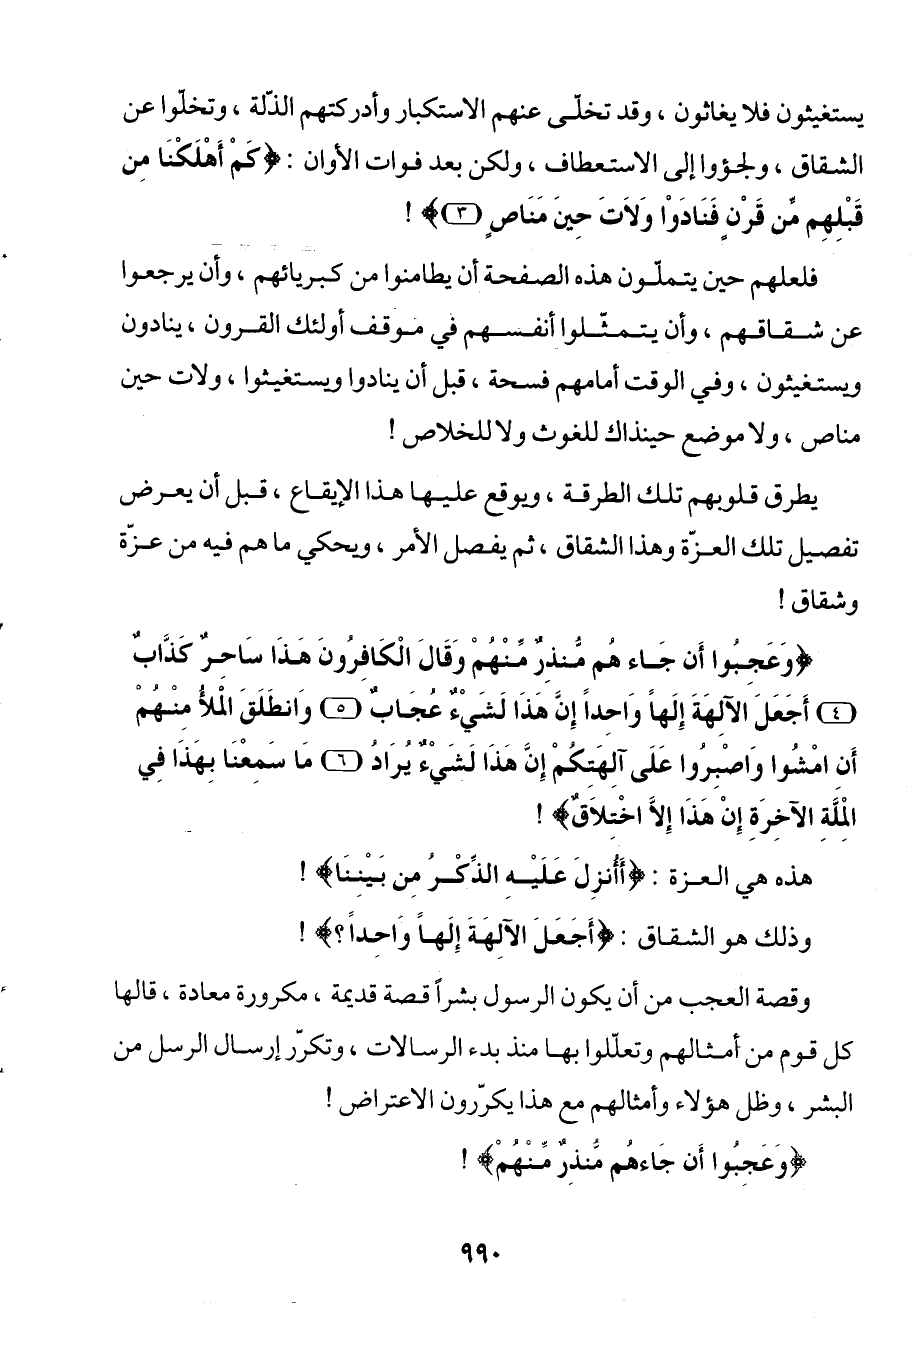 يستغيثون فلا يغاثون ، وقد تخلّى عنهم الاستكبار وأدركتهم الذّلة ، وتخلّوا عن
الشقاق ، ولجؤوا إلى الاستعطاف ، ولكن بعد فوات الأوان : ﴿كَمْ أَهْلَكْنَا مِن
قَبْلِهِم مِّن قَرْنٍ فَنَادَوْا وَلَاتَ حِينَ مَنَاصٍ (٣)﴾ !
فلعلهم حين يتملّون هذه الصفحة أن يطامنوا من كبريائهم ، وأن يرجعوا
عن شقاقهم ، وأن يتمثّلوا أنفسهم في موقف أولئك القرون ، ينادون
ويستغيثون ، وفي الوقت أمامهم فسحة ، قبل أن ينادوا ويستغيثوا ، ولات حين
مناص ، ولا موضع حينذاك للغوث ولا للخلاص !
يطرق قلوبهم تلك الطرقة ، ويوقع عليها هذا الإيقاع ، قبل أن يعرض
تفصيل تلك العزّة وهذا الشقاق ، ثم يفصل الأمر ، ويحكي ما هم فيه من عزّة
وشقاق !
﴿وَعَجِبُوا أَن جَاءهُم مُّنذِرٌ مِّنْهُمْ وَقَالَ الْكَافِرُونَ هَذَا سَاحِرٌ كَذَّابٌ
(٤) أَجَعَلَ الآلِهَةَ إِلَهاً وَاحِداً إِنَّ هَذَا لَشَيْءٌ عُجَابٌ (٥) وَانطَلَقَ الْمَلأُ مِنْهُمْ
أَنِ امْشُوا وَاصْبِرُوا عَلَى آلِهَتِكُمْ إِنَّ هَذَا لَشَيْءٌ يُرَادُ (٦) مَا سَمِعْنَا بِهَذَا فِي
الْمِلَّةِ الآخِرَةِ إِنْ هَذَا إِلاَّ اخْتِلَاقٌ﴾ !
هذه هي العزة : ﴿أَأُنزِلَ عَلَيْهِ الذِّكْرُ مِن بَيْنِنَا﴾ !
وذلك هو الشقاق : ﴿أَجَعَلَ الآلِهَةَ إِلَهاً وَاحِداً ؟﴾ !
وقصة العجب من أن يكون الرسول بشراً قصة قديمة ، مكرورة معادة ، قالها
كل قوم من أمثالهم وتعلّلوا بها منذ بدء الرسالات ، وتكرّر إرسال الرسل من
البشر ، وظل هؤلاء وأمثالهم مع هذا يكرّرون الاعتراض !
﴿وَعَجِبُوا أَن جَاءهُم مُّنذِرٌ مِّنْهُمْ﴾ !
٩٩٠